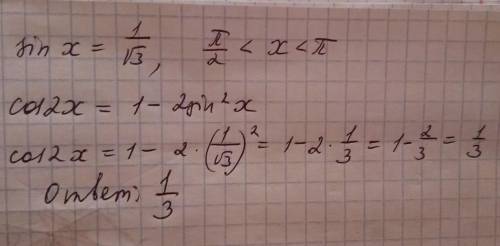 sin x = 1/√3, π/2 < x < π
cos2x = 1 - 2sin²x
cos2x = 1 - 2·(1/√3)² = 1-2·1/3 = 1-2/3 = 1/3
Ответ: 1/3